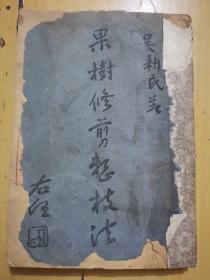 吴耕民著
果樹修剪整枝法
右任